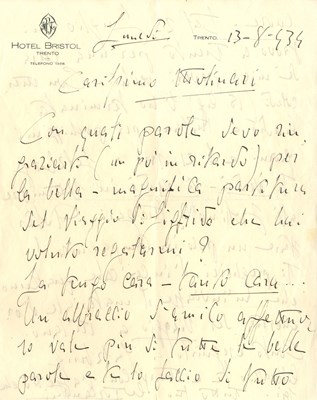 HOTEL BRISTOL
TRENTO
TELEFONO 1346
Lunedì TRENTO 13-8-934
Carissimo Molinari
Con quali parole devo rin
graziarti (un po' in ritardo) per
la bella - magnifica - partitura
del viaggio di Sigfrido che hai
voluto regalarmi?
La tengo cara - tanto cara...
Un abbraccio d'amico affettuo
so vale più di tutte le belle
parole e te lo faccio di tutto